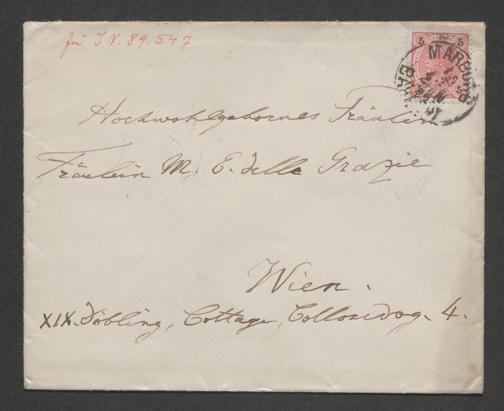 Zu I.N. 89.547
MARBURG
BAHN
5
5
Hochwohlgebornes Fräulein
Fräulein M. E. delle Grazie
Wien.
XIX. Döbling, Cottage, 4.